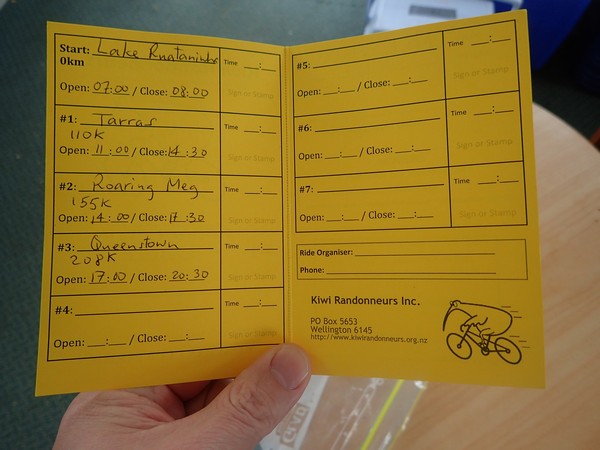 Start: Lake Ruataniwha
0km
Time __:__
Open: 07:00 / Close: 08:00
Sign or Stamp
#1: Tarras
110K
Time __:__
Open: 11:00 / Close: 14:30
Sign or Stamp
#2: Roaring Meg
155K
Time __:__
Open: 14:00 / Close: 17:30
Sign or Stamp
#3: Queenstown
208K
Time __:__
Open: 17:00 / Close: 20:30
Sign or Stamp
#4:
Time __:__
Open: __:__ / Close: __:__
Sign or Stamp
#5:
Time __:__
Open: __:__ / Close: __:__
Sign or Stamp
#6:
Time __:__
Open: __:__ / Close: __:__
Sign or Stamp
#7:
Time __:__
Open: __:__ / Close: __:__
Sign or Stamp
Ride Organiser:
Phone:
Kiwi Randonneurs Inc.
PO Box 5653
Wellington 6145
http://www.kiwirandonneurs.org.nz